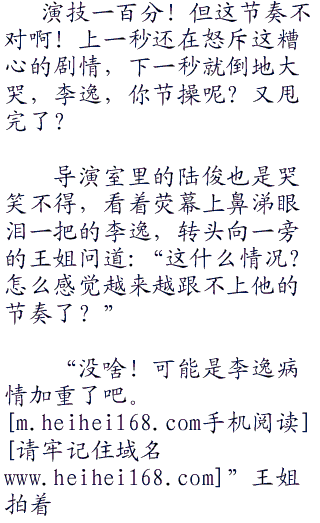 演技一百分！但这节奏不
对啊！上一秒还在怒斥这糟
心的剧情，下一秒就倒地大
哭，李逸，你节操呢？又甩
完了？
导演室里的陆俊也是哭
笑不得，看着荧幕上鼻涕眼
泪一把的李逸，转头向一旁
的王姐问道：“这什么情况？
怎么感觉越来越跟不上他的
节奏了？”
“没啥！可能是李逸病
情加重了吧。
[m.heihei168.com手机阅读]
[请牢记住域名
www.heihei168.com]”王姐
拍着